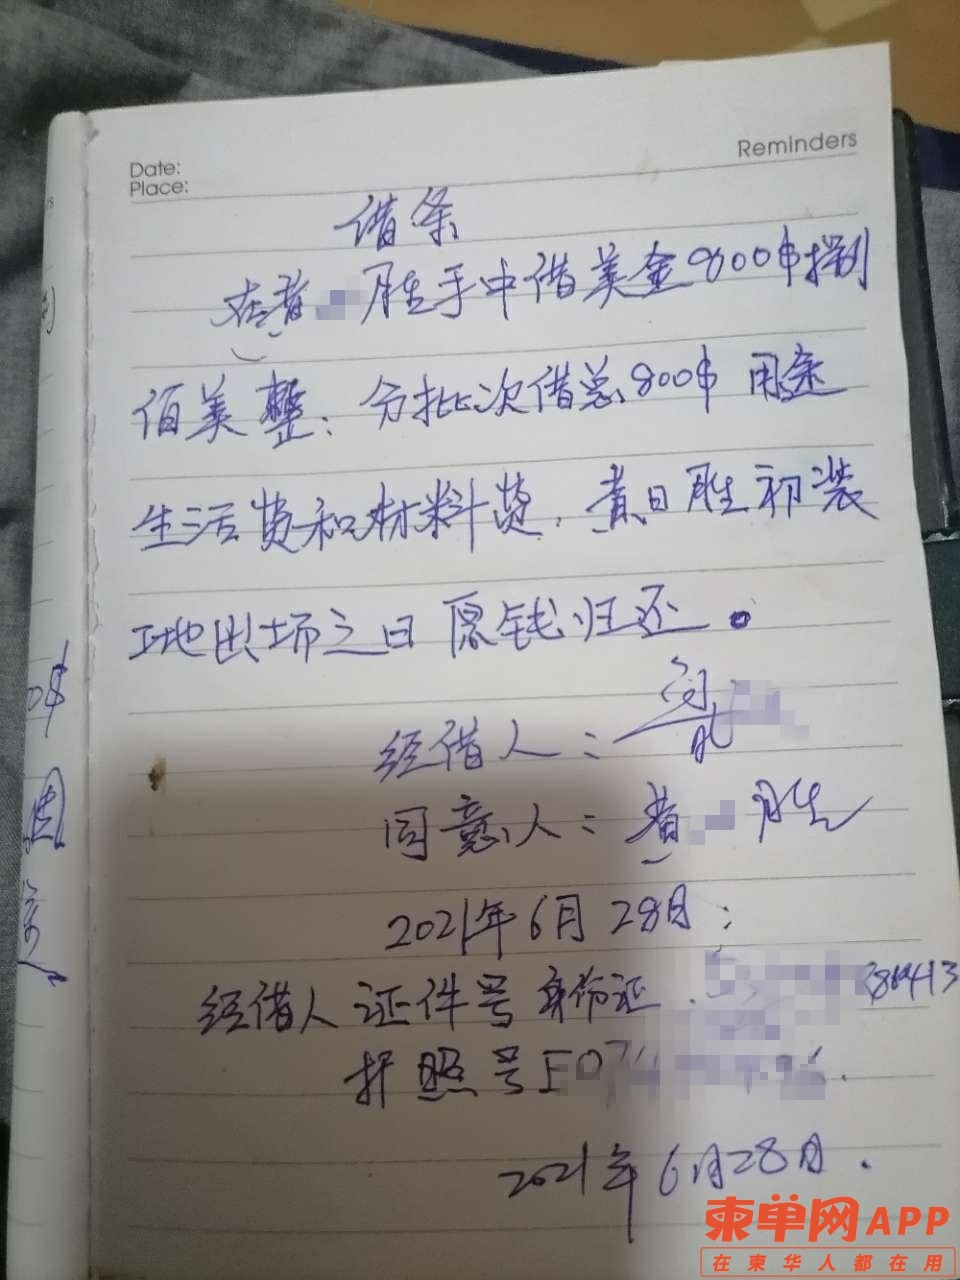 Reminders
Date:
Place:
借条
在黄 胜手中借美金800$捌
佰美整：分批次借总800$用途
生活费和材料费，黄日胜初装
工地出场之日原钱归还。
经借人：
同意人：黄 胜
2021年6月28日；
经借人证件号身份证 413
护照号E07
2021年6月28日.
柬单网APP
在柬华人都在用